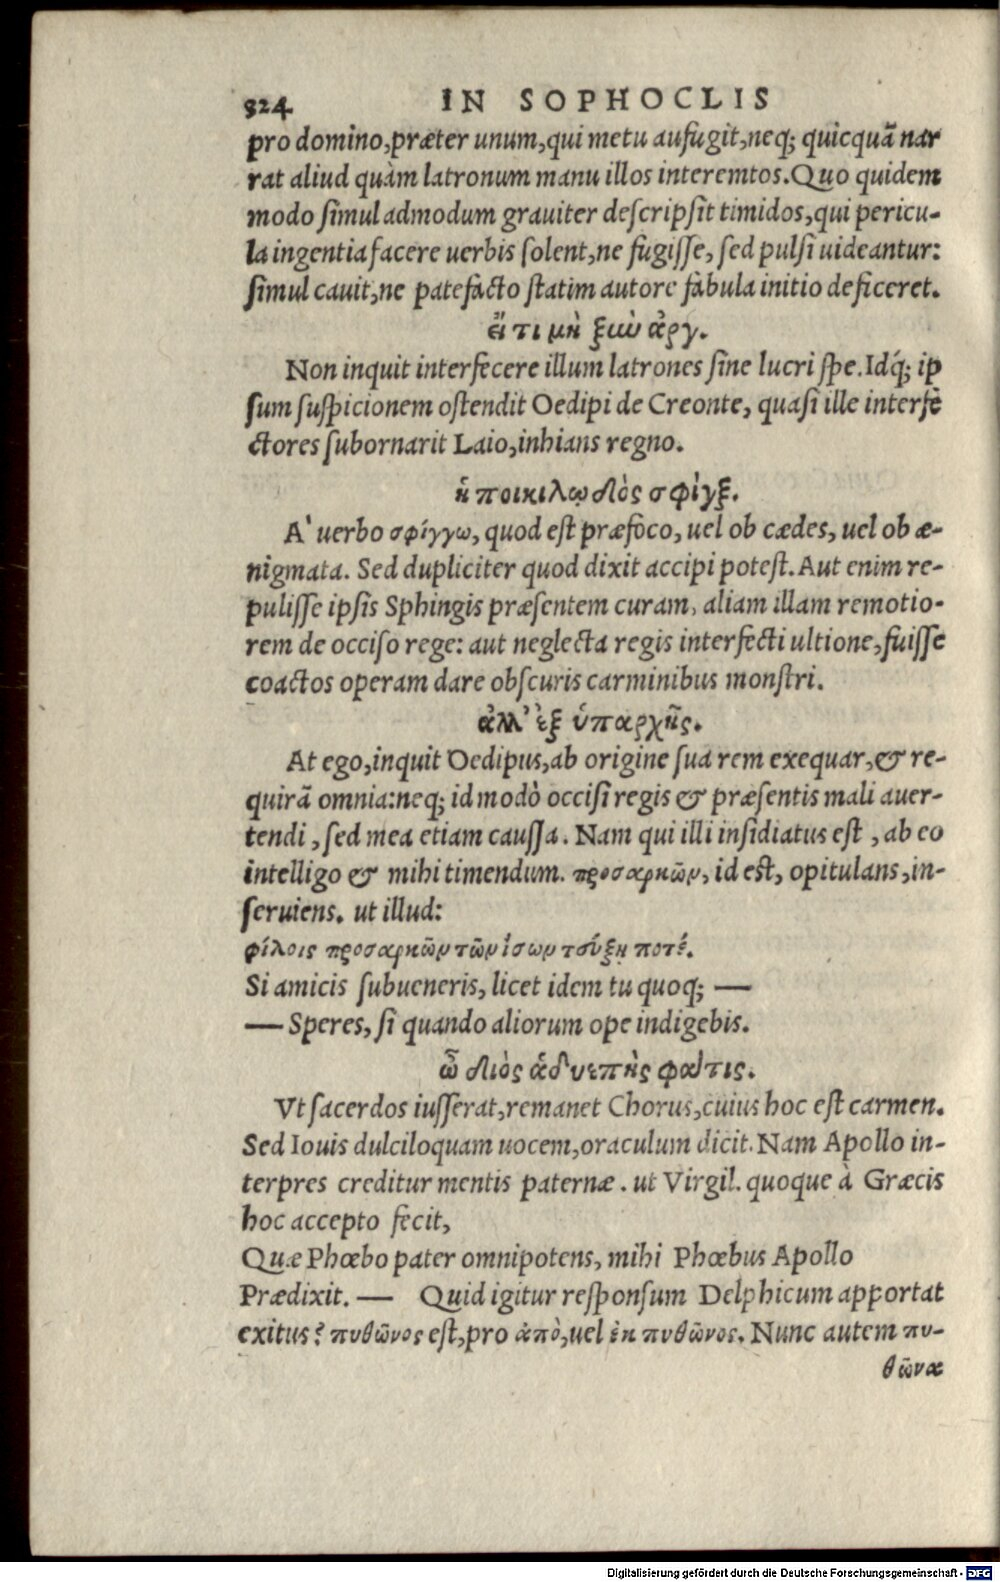 324 IN SOPHOCLIS
pro domino, præter unum, qui metu aufugit, neq; quicquã nar
rat aliud quàm latronum manu illos interemtos. Quo quidem
modo ſimul admodum grauiter deſcripſit timidos, qui pericu-
la ingentia facere uerbis ſolent, ne fugiſſe, ſed pulſi uideantur:
ſimul cauit, ne patefacto ſtatim autore fabula initio deficeret.
εἴ τι μὴ ξὺν ἀργ.
Non inquit interfecere illum latrones ſine lucri ſpe. Idq́; ip
ſum ſuſpicionem oſtendit Oedipi de Creonte, quaſi ille interfe
ctores ſubornarit Laio, inhians regno.
ἡ ποικιλῳδὸς σφὶγξ.
A' uerbo σφίγγω, quod eſt præfoco, uel ob cædes, uel ob æ-
nigmata. Sed dupliciter quod dixit accipi poteſt. Aut enim re-
puliſſe ipſis Sphingis præſentem curam, aliam illam remotio-
rem de occiſo rege: aut neglecta regis interfecti ultione, fuiſſe
coactos operam dare obſcuris carminibus monſtri.
ἀλλ' ἐξ ὑπαρχῆς.
At ego, inquit Oedipus, ab origine ſua rem exequar, & re-
quirã omnia: neq; id modò occiſi regis & præſentis mali auer-
tendi, ſed mea etiam cauſſa. Nam qui illi inſidiatus eſt, ab eo
intelligo & mihi timendum. προσαρκῶν, id eſt, opitulans, in-
ſeruiens. ut illud:
φίλοις προσαρκῶν τῶν ἴσων τεύξῃ ποτέ.
Si amicis ſubueneris, licet idem tu quoq; —
— Speres, ſi quando aliorum ope indigebis.
ὦ διὸς ἁδυεπὴς φάτις.
Vt ſacerdos iuſſerat, remanet Chorus, cuius hoc eſt carmen.
Sed Iouis dulciloquam uocem, oraculum dicit. Nam Apollo in-
terpres creditur mentis paternæ. ut Virgil. quoque à Græcis
hoc accepto fecit,
Quæ Phœbo pater omnipotens, mihi Phœbus Apollo
Prædixit. — Quid igitur reſponſum Delphicum apportat
exitus? πυθῶνος eſt, pro ἀπὸ, uel ἐκ πυθῶνος. Nunc autem πυ-
θῶνα
Digitalisierung gefördert durch die Deutsche Forschungsgemeinschaft - DFG